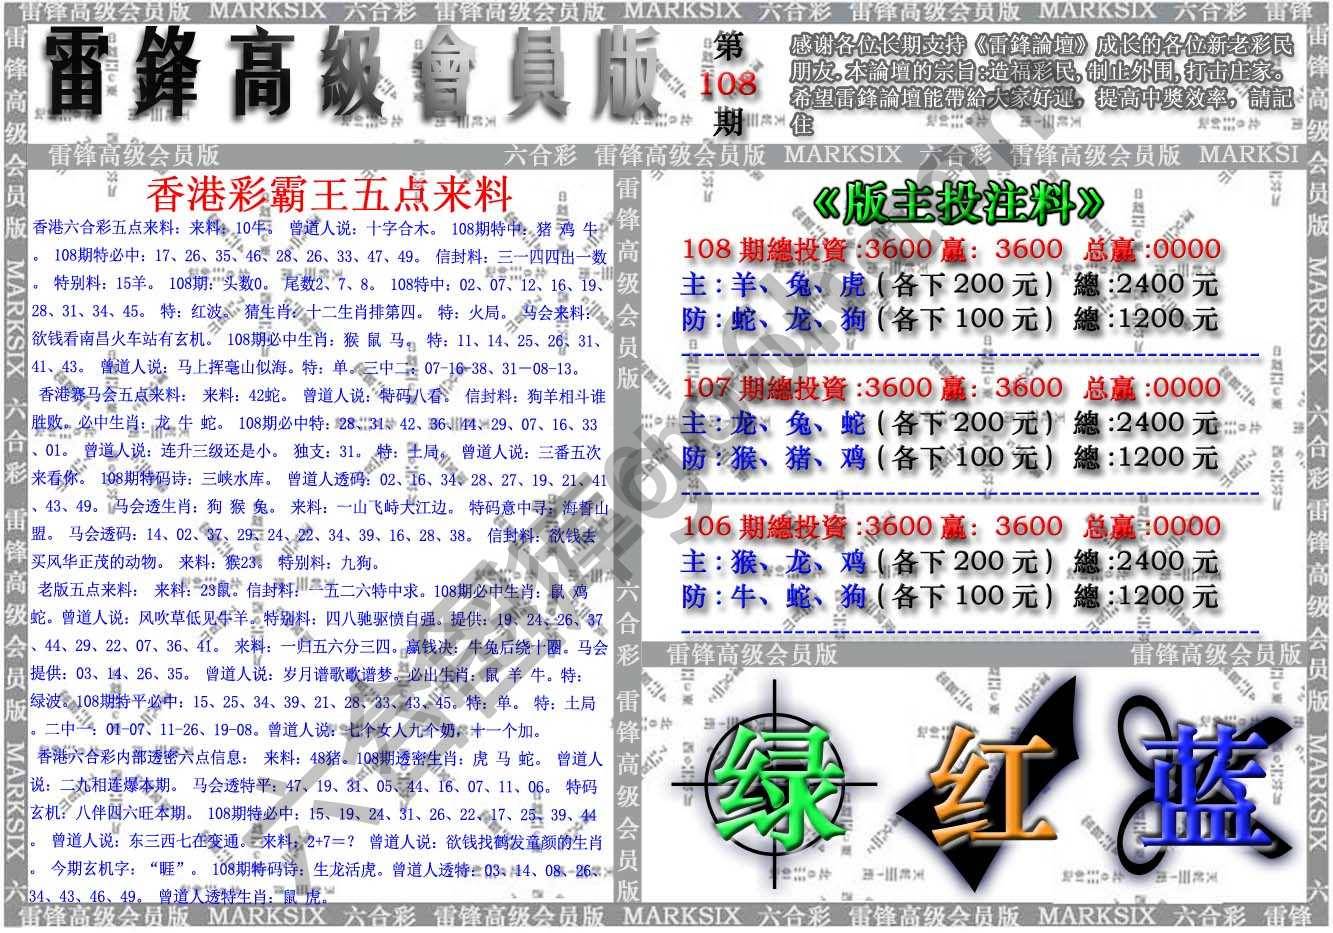 雷锋高级会员版 MARKSIX 六合彩 雷锋高级会员版 MARKSIX 六合彩 雷锋高级会员版 MARKSIX 六合彩 雷锋
雷鋒高級會員版
第
108
期
感谢各位长期支持《雷鋒論壇》成长的各位新老彩民
朋友.本論壇的宗旨:造福彩民,制止外围,打击庄家。
希望雷鋒論壇能帶給大家好運，提高中獎效率，請記
住
雷锋高级会员版 六合彩 雷锋高级会员版 MARKSIX 六合彩 雷锋高级会员版 MARKSI
香港彩霸王五点来料
香港六合彩五点来料：来料：10牛。 曾道人说：十字合木。 108期特中：猪 鸡 牛
。 108期特必中：17、26、35、46、28、26、33、47、49。 信封料：三一四四出一数
。 特别料：15羊。 108期：头数0。 尾数2、7、8。 108特中：02、07、12、16、19、
28、31、34、45。 特：红波。 猜生肖：十二生肖排第四。 特：火局。 马会来料：
欲钱看南昌火车站有玄机。 108期必中生肖：猴 鼠 马。 特：11、14、25、26、31、
41、43。 曾道人说：马上挥毫山似海。特：单。三中二：07-16-38、31－08-13。
香港赛马会五点来料： 来料：42蛇。 曾道人说：特码八看。 信封料：狗羊相斗谁
胜败。必中生肖：龙 牛 蛇。 108期必中特：28、31、42、36、44、29、07、16、33
、01。 曾道人说：连升三级还是小。 独支：31。 特：土局。 曾道人说：三番五次
来看你。 108期特码诗：三峡水库。 曾道人透码：02、16、34、28、27、19、21、41
、43、49。 马会透生肖：狗 猴 兔。 来料：一山飞峙大江边。 特码意中寻：海誓山
盟。 马会透码：14、02、37、29、24、22、34、39、16、28、38。 信封料：欲钱去
买风华正茂的动物。 来料：猴23。 特别料：九狗。
老版五点来料： 来料：23鼠。信封料：一五二六特中求。108期必中生肖：鼠 鸡
蛇。曾道人说：风吹草低见牛羊。特别料：四八驰驱愤自强。提供：19、24、26、37
、44、29、22、07、36、41。 来料：一归五六分三四。赢钱决：牛兔后绕十圈。马会
提供：03、14、26、35。 曾道人说：岁月谱歌歌谱梦。必出生肖：鼠 羊 牛。特：
绿波。108期特平必中：15、25、34、39、21、28、33、43、45。特：单。 特：土局
。二中一：01-07、11-26、19-08。曾道人说：七个女人九个奶，十一个加。
香港六合彩内部透密六点信息： 来料：48猪。108期透密生肖：虎 马 蛇。 曾道人
说：二九相连爆本期。 马会透特平：47、19、31、05、44、16、07、11、06。 特码
玄机：八伴四六旺本期。 108期特必中：15、19、24、31、26、22、17、25、39、44
。 曾道人说：东三西七在变通。 来料：2+7＝？ 曾道人说：欲钱找鹤发童颜的生肖
。 今期玄机字：“睚”。 108期特码诗：生龙活虎。曾道人透特：03、14、08、26、
34、43、46、49。 曾道人透特生肖：鼠 虎。
《版主投注料》
108 期總投資 :3600 赢： 3600 总赢 :0000
主 : 羊、兔、虎 ( 各下 200 元 ) 總 :2400 元
防: 蛇、龙、狗 ( 各下 100 元 ) 總 :1200 元
107 期總投資 :3600 赢： 3600 总赢 :0000
主 : 龙、兔、蛇 ( 各下 200 元 ) 總 :2400 元
防: 猴、猪、鸡 ( 各下 100 元 ) 總 :1200 元
106 期總投資 :3600 赢： 3600 总赢 :0000
主 : 猴、龙、鸡 ( 各下 200 元 ) 總 :2400 元
防: 牛、蛇、狗 ( 各下 100 元 ) 總 :1200 元
雷锋高级会员版 雷锋高级会员版
绿 红 蓝
雷锋高级会员版 MARKSIX 六合彩 雷锋高级会员版 MARKSIX 六
雷锋高级会员版 六合彩 雷锋高级会员版
雷锋高级会员版 MARKSIX 六合彩 雷锋高级会员版 MARKSIX 六
雷锋高级会员版 MARKSIX 六合彩 雷锋高级会员版 MARKSIX 六合彩 雷锋高级会员版 MARKSIX 六合彩 雷锋